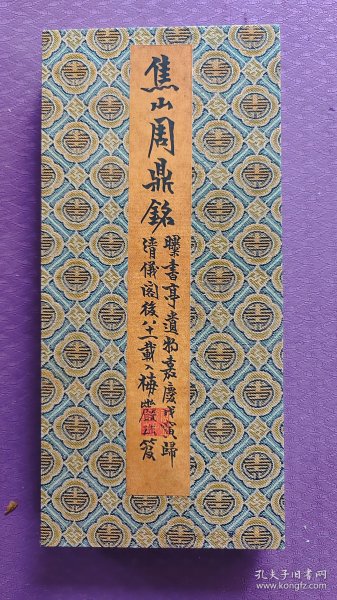 焦山周鼎銘
曝書亭遺物嘉慶戊寅歸
清儀閣後八十一載入梅
孔夫子旧书网
www.kongfz.com